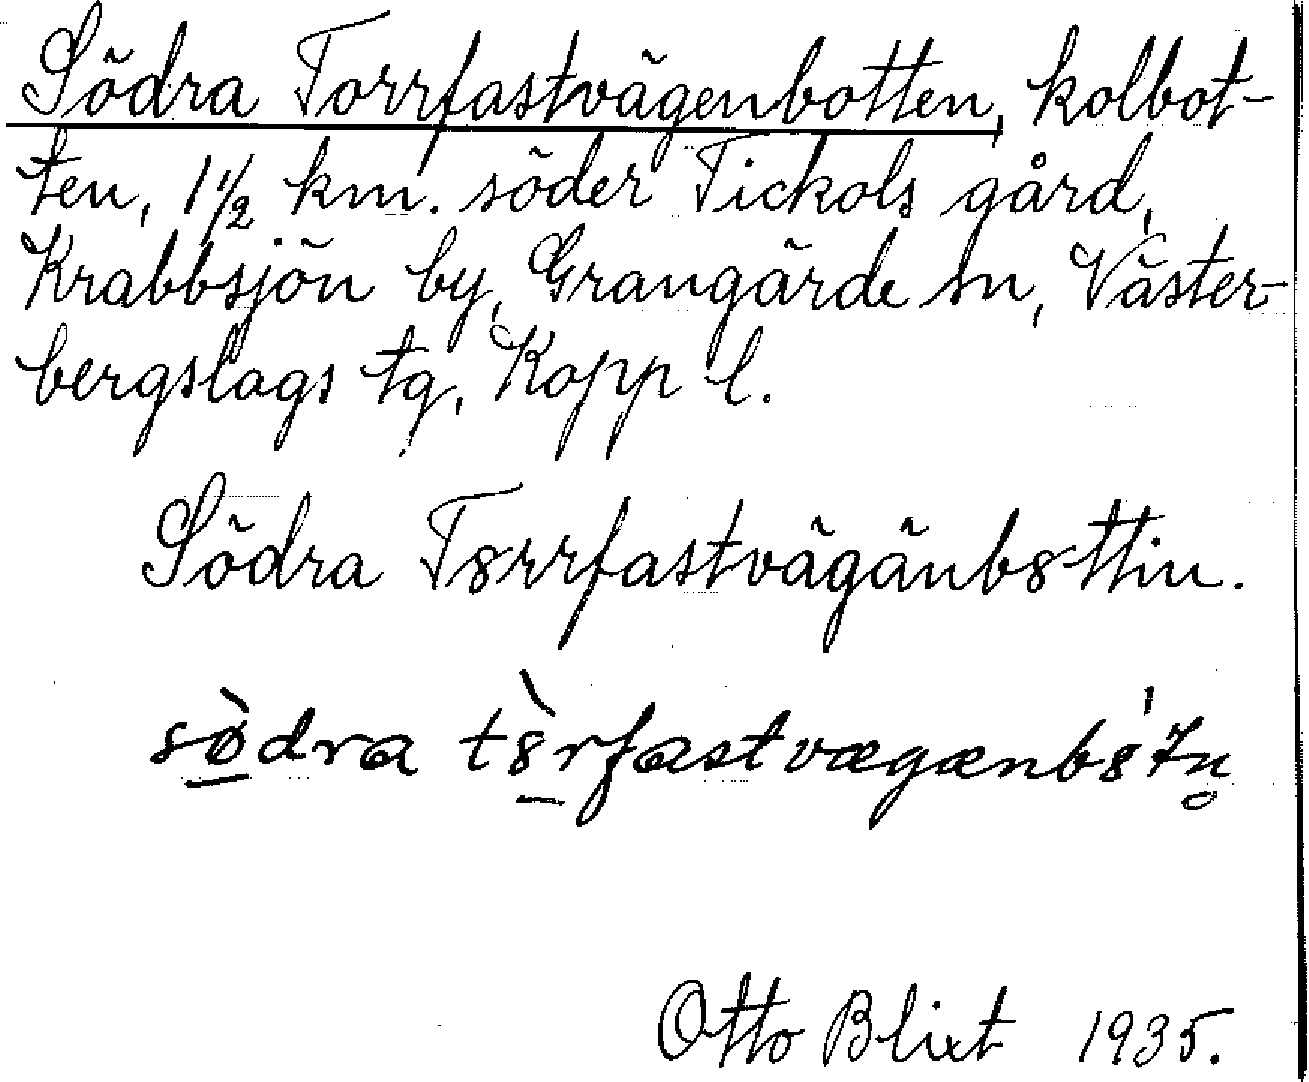 Södra Torrfastvägenbotten, kolbot-
ten, 1 1/2 km. söder Tickols gård,
Krabbsjön by, Grangärde sn, Väster-
bergslags tg, Kopp l.
Södra T8rrfastvägänb8ttin.
sø̀dra t8̀rfastvægænb8́tn̥
Otto Blixt 1935.